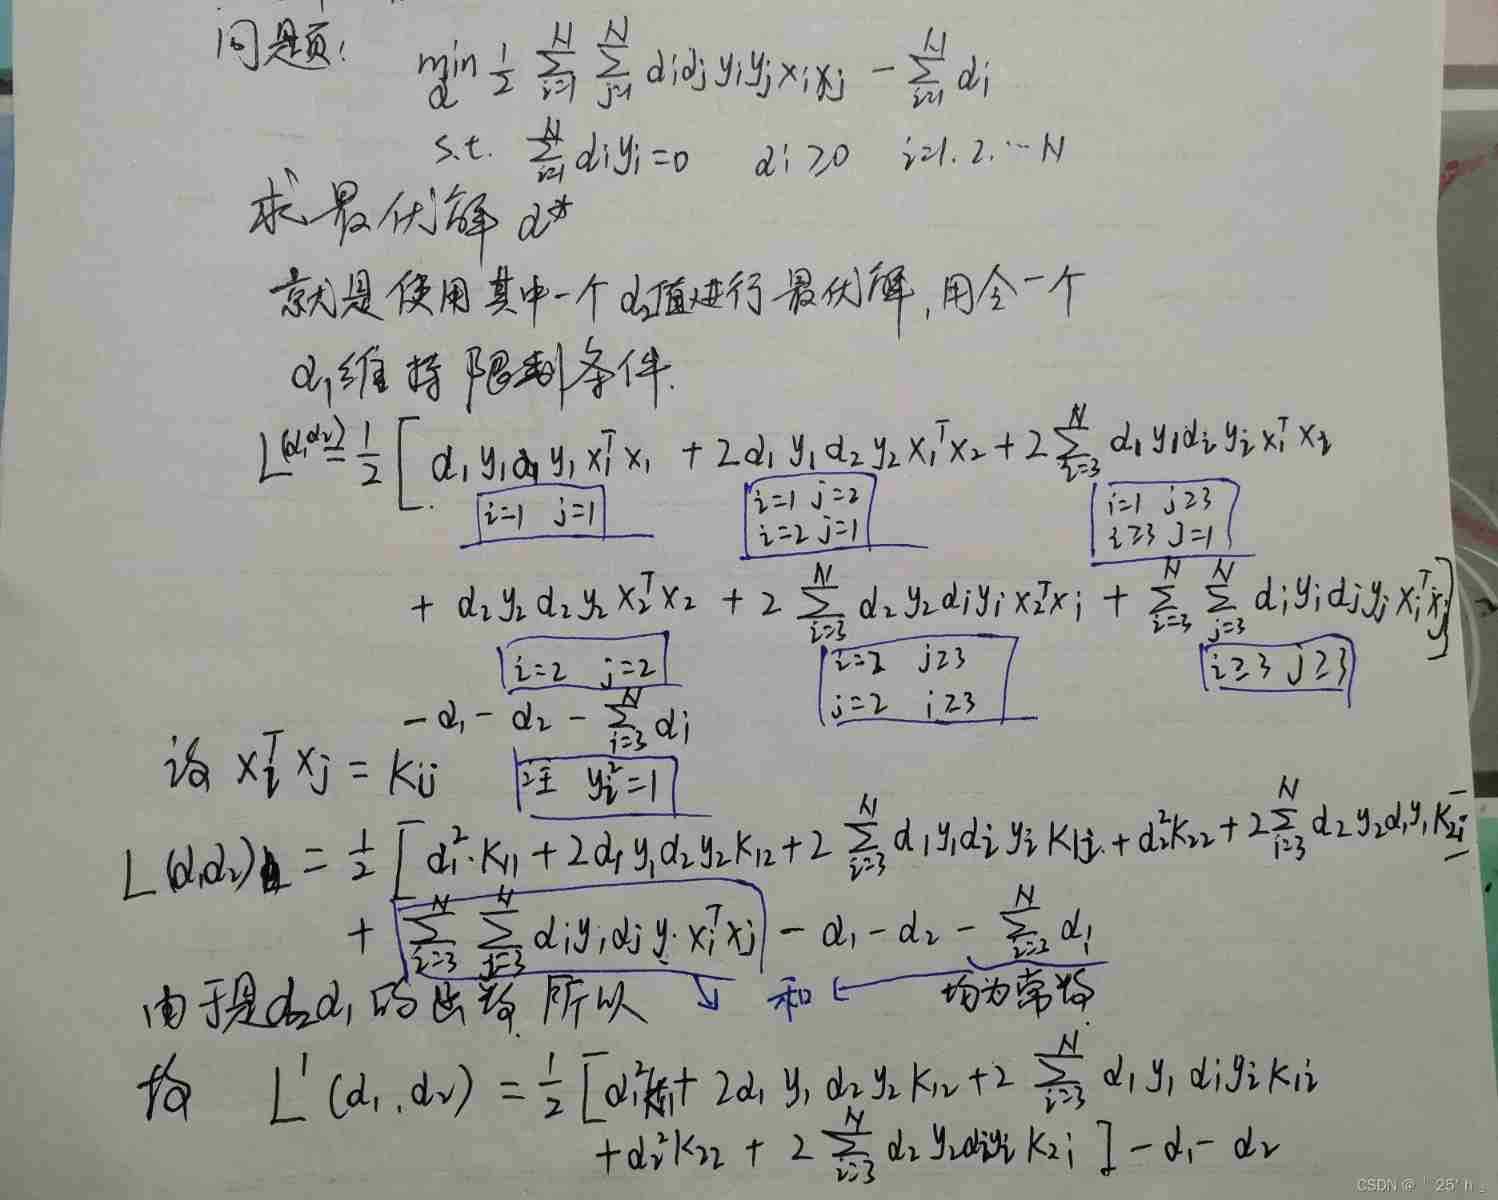 问题: min_α 1/2 Σ_{i=1}^{N} Σ_{j=1}^{N} αiαj yiyj xixj − Σ_{i=1}^{N} αi
s.t. Σ_{i=1}^{N} αiyi=0 αi≥0 i=1.2.…N
求最优解 α*
就是使用其中一个α₂值进行最优解,用令一个
α₁维持限制条件.
L(α₁α₂)=1/2 [α₁y₁α₁y₁x₁ᵀx₁ + 2α₁y₁α₂y₂x₁ᵀx₂ + 2Σ_{i=3}^{N} α₁y₁αiyix₁ᵀxi
i=1 j=1 i=1 j=2 i=1 j≥3
i=2 j=1 i≥3 j=1
+ α₂y₂α₂y₂x₂ᵀx₂ + 2Σ_{i=3}^{N} α₂y₂αiyix₂ᵀxi + Σ_{i=3}^{N} Σ_{j=3}^{N} αiyiαjyjxiᵀxj]
i=2 j=2 i=2 j≥3 i≥3 j≥3
j=2 i≥3
−α₁ − α₂ − Σ_{i=3}^{N} αi
设 xiᵀxj = Kij 注 yi²=1
L(α₁α₂) = 1/2 [α₁²·K₁₁ + 2α₁y₁α₂y₂K₁₂ + 2Σ_{i=3}^{N} α₁y₁αiyiK₁i + α₂²K₂₂ + 2Σ_{i=3}^{N} α₂y₂αiyiK₂i
+ Σ_{i=3}^{N} Σ_{j=3}^{N} αiyiαjy·xiᵀxj − α₁ − α₂ − Σ_{i=2}^{N} αi
由于是α₂α₁的函数 所以 和 均为常数
故 L'(α₁,α₂) = 1/2 [α₁²K₁₁ + 2α₁y₁α₂y₂K₁₂ + 2Σ_{i=3}^{N} α₁y₁αiyiK₁i
+α₂²K₂₂ + 2Σ_{i=3}^{N} α₂y₂αiyiK₂i] − α₁ − α₂
CSDN @「25'h」